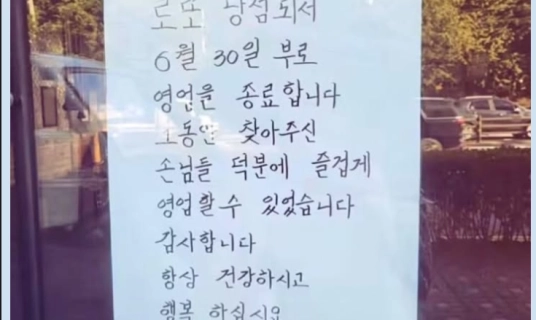 로또 당첨되서
6월 30일 부로
영업을 종료합니다
그동안 찾아주신
손님들 덕분에 즐겁게
영업할수 있었습니다
감사합니다
항상 건강하시고
행복 하십시요